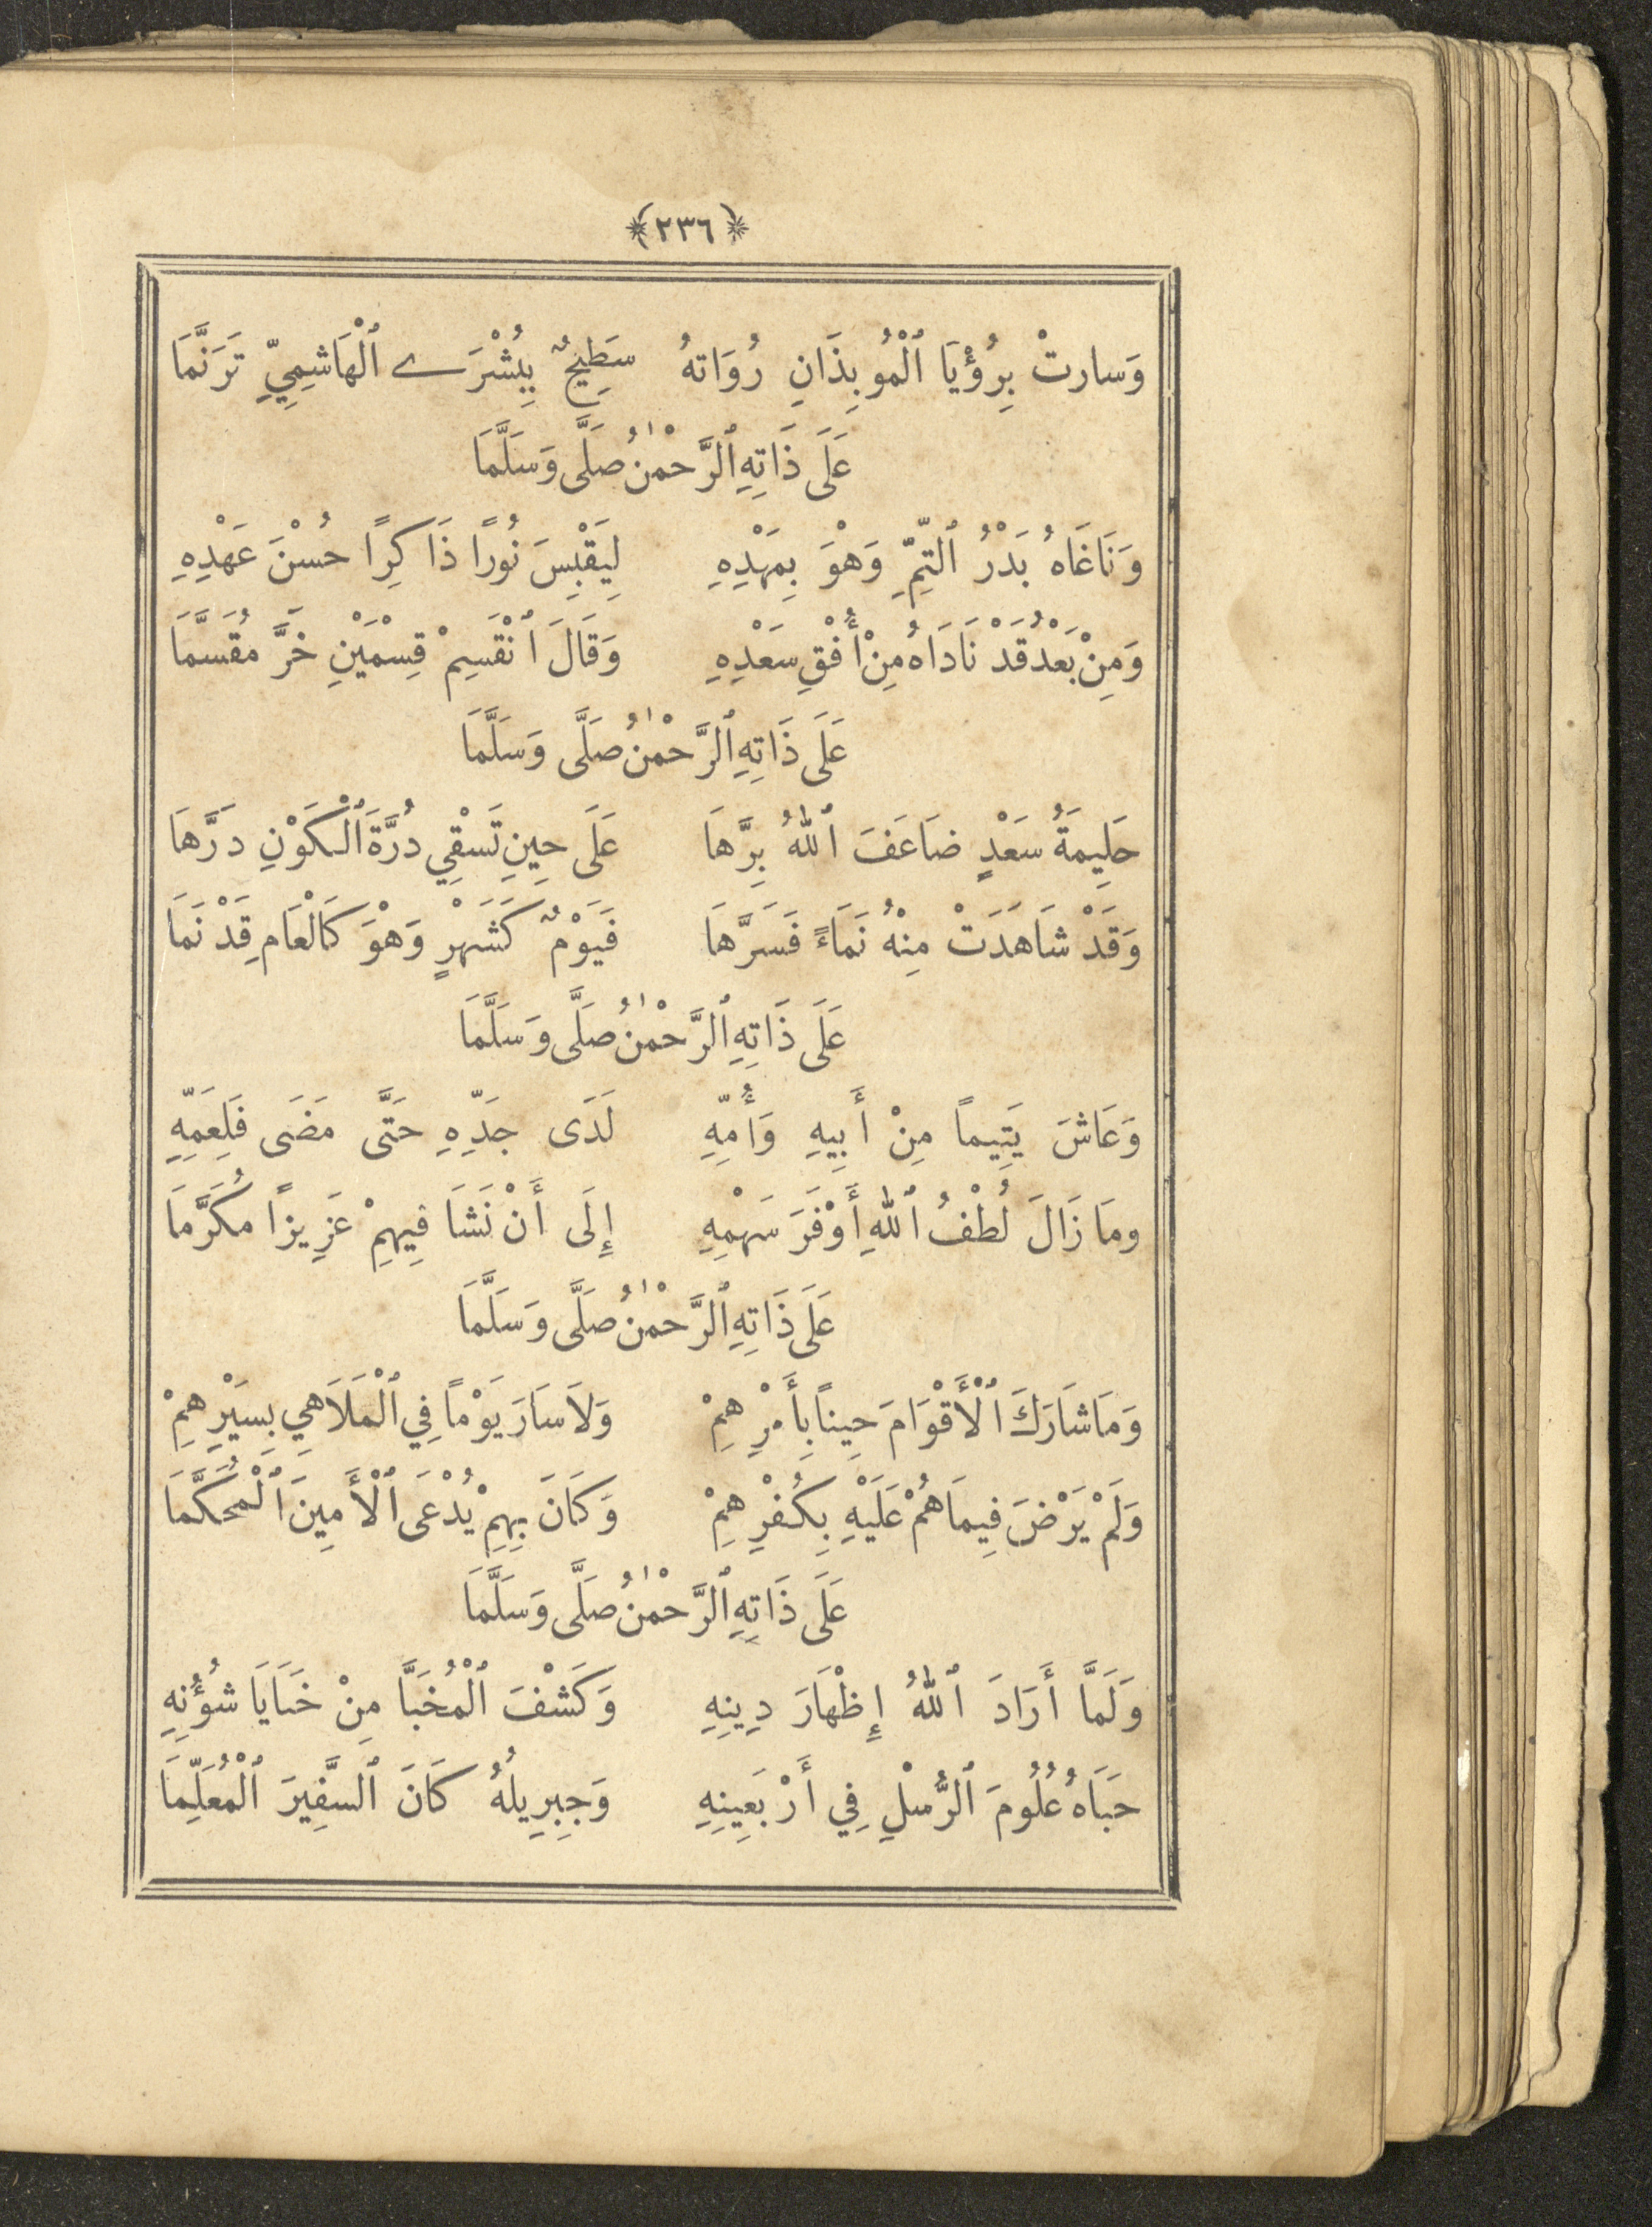 ﴿٢٣٦﴾
وَسارتْ بِرُؤْيَا ٱلْمُوبِذَانِ رُوَاتهُ سَطِيحٌ بِبُشْرَى ٱلْهَاشِمِيِّ تَرَنَّمَا
عَلَى ذَاتِهِ ٱلرَّحْمٰنُ صَلَّى وَسَلَّمَا
وَنَاغَاهُ بَدْرُ ٱلتِّمِّ وَهْوَ بِمَهْدِهِ لِيَقْبِسَ نُوراً ذَاكِراً حُسْنَ عَهْدِهِ
وَمِنْ بَعْدُ قَدْ نَادَاهُ مِنْ أُفْقِ سَعْدِهِ وَقَالَ ٱنْقَسِمْ قِسْمَيْنِ خَرَّ مُقَسَّمَا
عَلَى ذَاتِهِ ٱلرَّحْمٰنُ صَلَّى وَسَلَّمَا
حَلِيمَةُ سَعْدٍ ضاعَفَ ٱللهُ بِرَّهَا عَلَى حِينِ تَسْقِي دُرَّةَ ٱلْكَوْنِ دَرَّهَا
وَقَدْ شَاهَدَتْ مِنْهُ نَمَاءً فَسَرَّهَا فَيَوْمٌ كَشَهْرٍ وَهْوَ كَالْعَامِ قَدْ نَمَا
عَلَى ذَاتِهِ ٱلرَّحْمٰنُ صَلَّى وَسَلَّمَا
وَعَاشَ يَتِيماً مِنْ أَبِيهِ وَأُمِّهِ لَدَى جَدِّهِ حَتَّى مَضَى فَلِعَمِّهِ
ومَا زَالَ لُطْفُ ٱللهِ أَوْفَرَ سَهْمِهِ إِلَى أَنْ نَشَا فِيهِمْ عَزِيزاً مُكَرَّمَا
عَلَى ذَاتِهِ ٱلرَّحْمٰنُ صَلَّى وَسَلَّمَا
وَمَا شَارَكَ ٱلْأَقْوَامَ حِيناً بِأَمْرِهِمْ وَلاَ سَارَ يَوْماً فِي ٱلْمَلاَهِي بِسَيْرِهِمْ
وَلَمْ يَرْضَ فِيمَا هُمْ عَلَيْهِ بِكُفْرِهِمْ وَكَانَ بِهِمْ يُدْعَى ٱلْأَمِينَ ٱلْمُحَكَّمَا
عَلَى ذَاتِهِ ٱلرَّحْمٰنُ صَلَّى وَسَلَّمَا
وَلَمَّا أَرَادَ ٱللهُ إِظْهَارَ دِينِهِ وَكَشْفَ ٱلْمُخَبَّا مِنْ خَبَايَا شُؤُنِهِ
حَبَاهُ عُلُومَ ٱلرُّسْلِ فِي أَرْبَعِينِهِ وَجِبِرِيلُهُ كَانَ ٱلسَّفِيرَ ٱلْمُعَلِّمَا